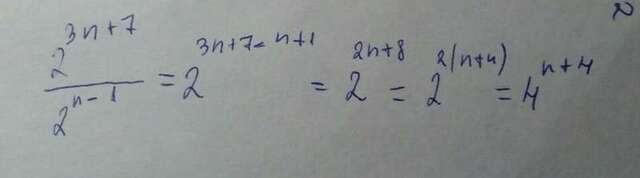 2^{3n+7} / 2^{n-1} = 2^{3n+7-n+1} = 2^{2n+8} = 2^{2(n+4)} = 4^{n+4}